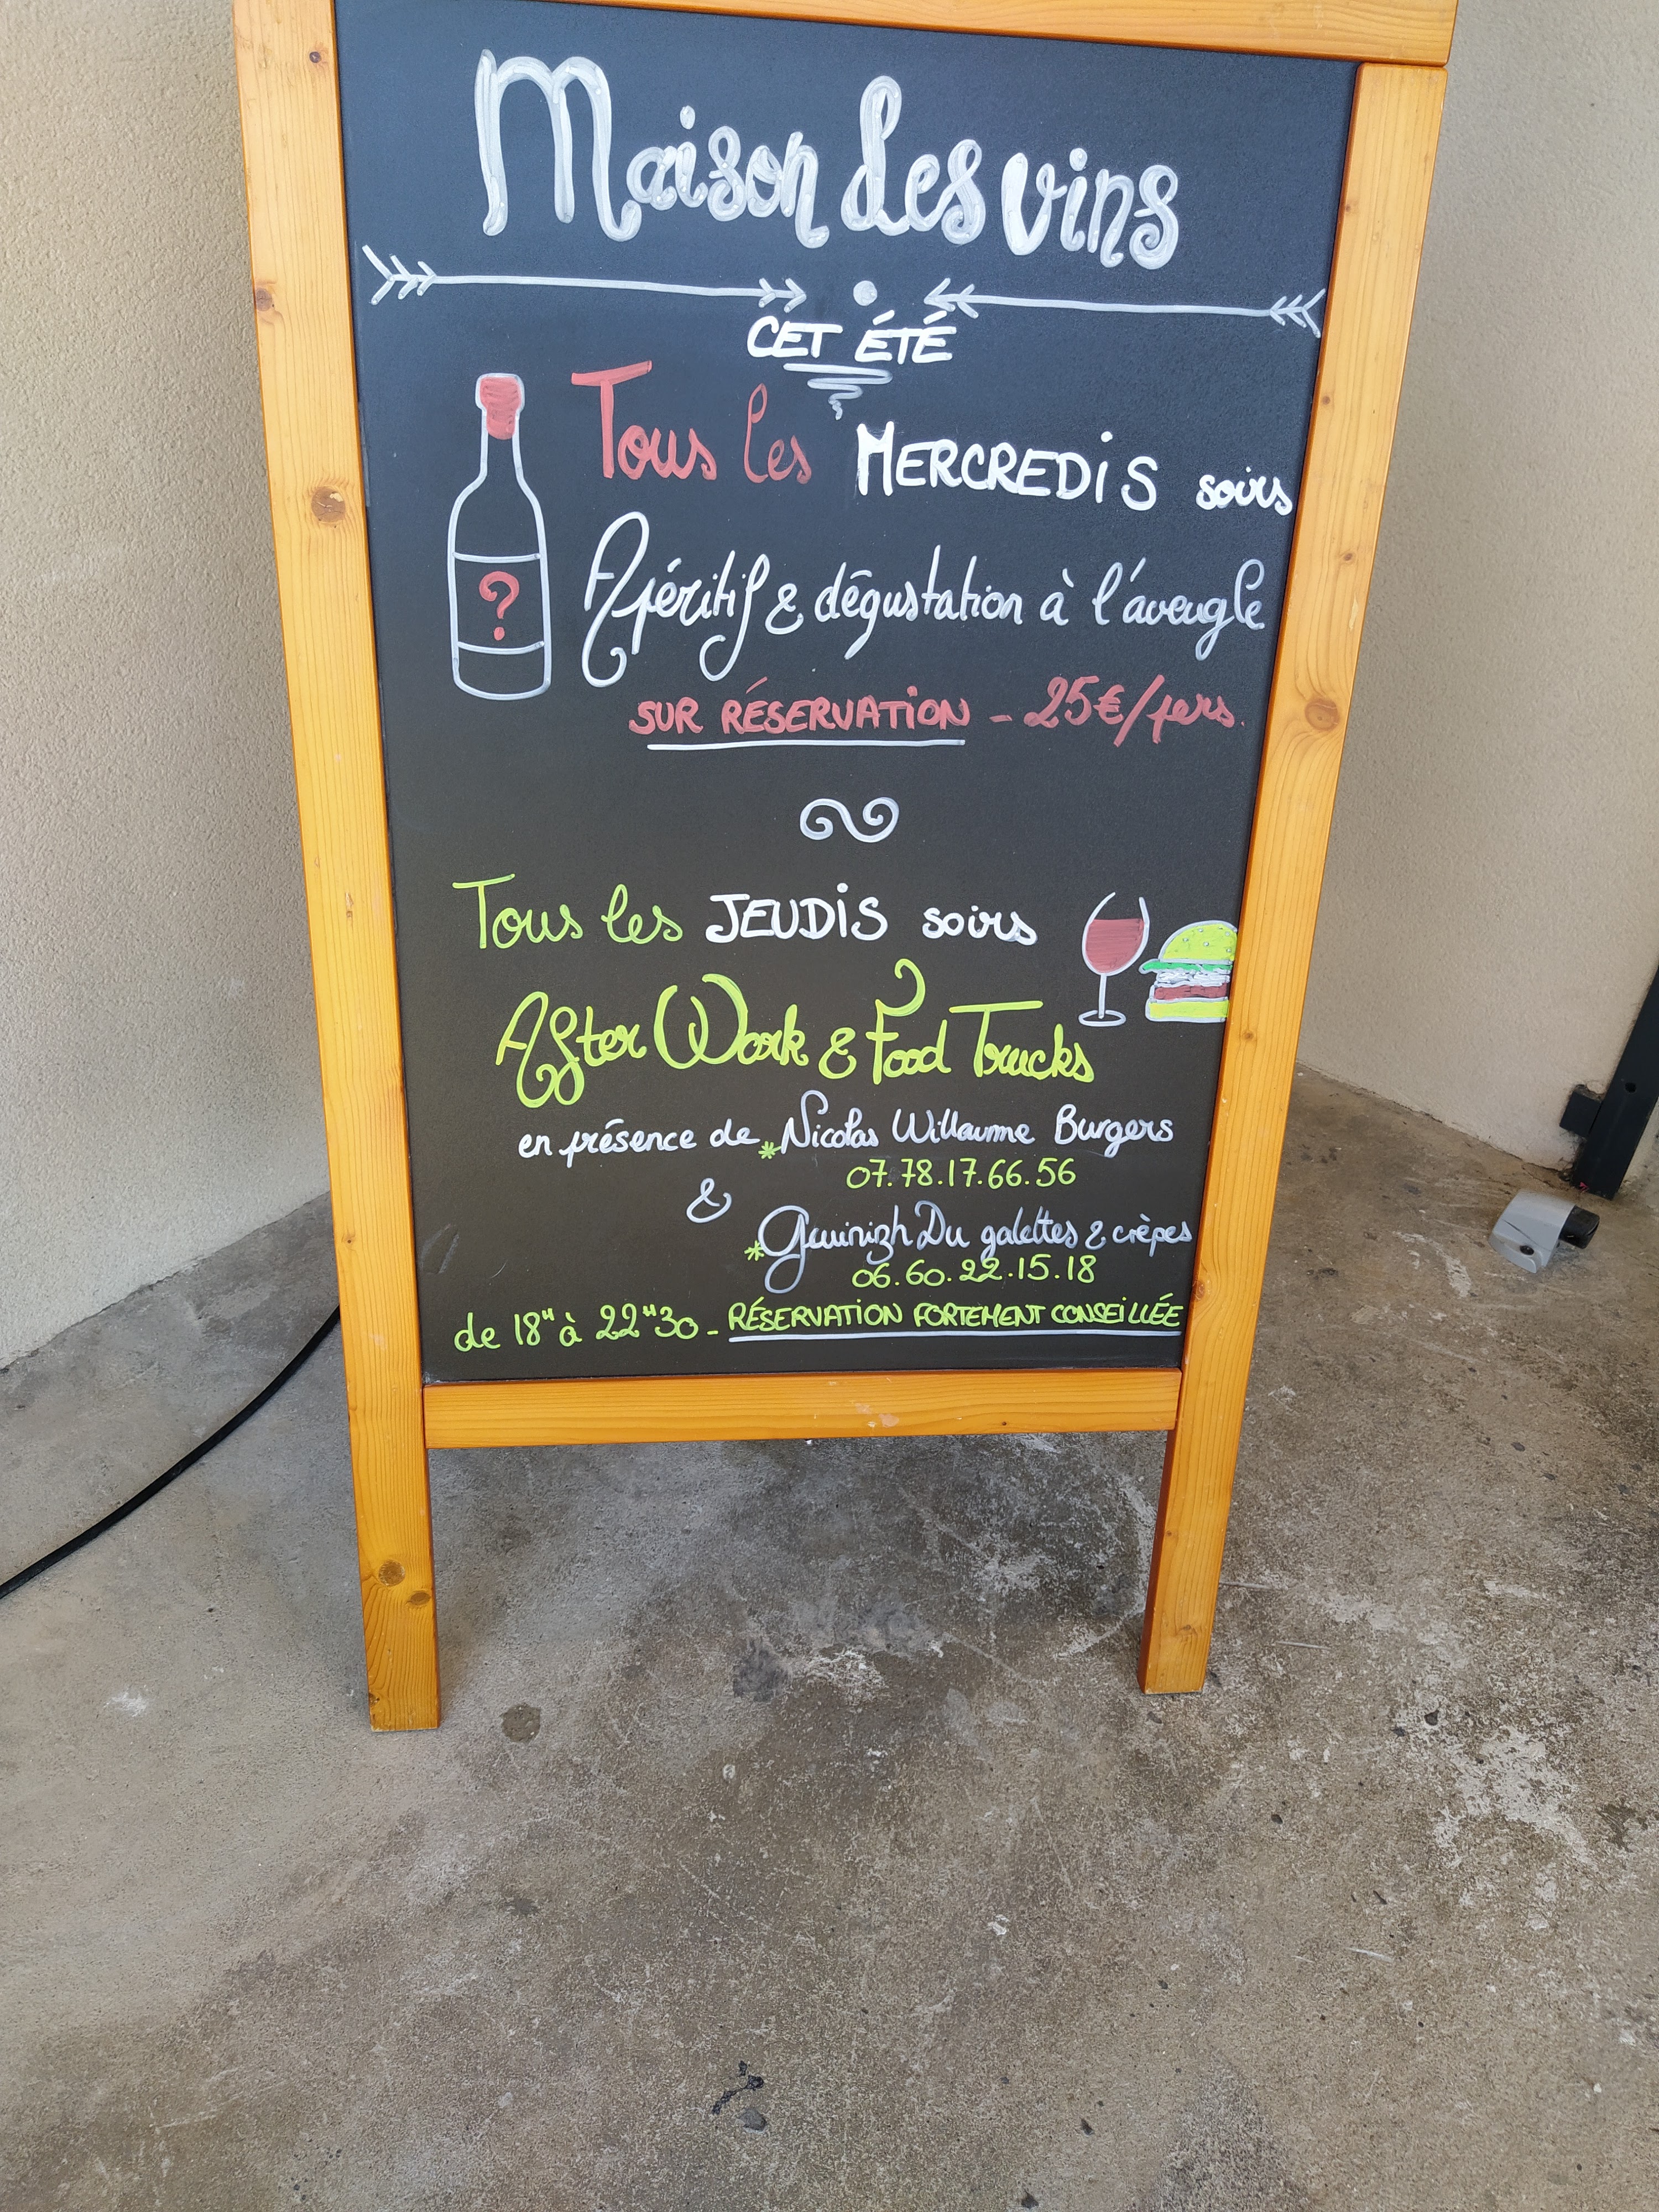 Maison des vins
CET ÉTÉ
Tous les MERCREDIS soirs
?
Apéritif & dégustation à l'aveugle
SUR RÉSERVATION - 25€/pers.
Tous les JEUDIS soirs
After Work & Food Trucks
en présence de *Nicolas Willaume Burgers
07.78.17.66.56
&
*Gwinizh Du galettes & crêpes
06.60.22.15.18
de 18H à 22H30 - RÉSERVATION FORTEMENT CONSEILLÉE